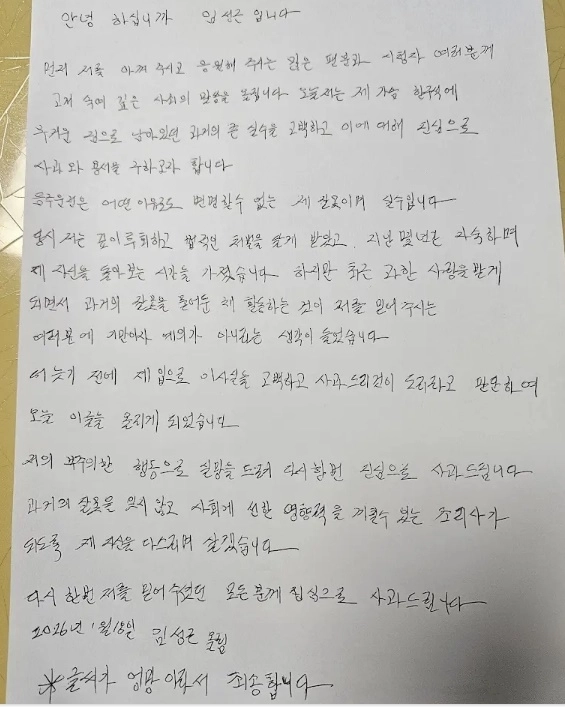 안녕 하십니까 임성근 입니다
먼저 저를 아껴 주시고 응원해 주시는 많은 팬분과 시청자 여러분께
고개 숙여 깊은 사죄의 말씀을 올립니다 오늘 저는 제 가슴 한구석에
무거운 짐으로 남아있던 과거의 큰 실수를 고백하고 이에 대해 진심으로
사과와 용서를 구하고자 합니다
음주운전은 어떤 이유로도 변명할수 없는 제 잘못이며 실수입니다
당시 저는 깊이 후회하고 법적인 처벌을 달게 받았고, 지난 몇년간 자숙하며
제 자신을 돌아보는 시간을 가졌습니다 하지만 최근 과한 사랑을 받게
되면서 과거의 잘못을 묻어둔 채 활동하는 것이 저를 믿어 주시는
여러분에 기만이자 예의가 아니라는 생각이 들었습니다
더 늦기 전에 제 입으로 이사실을 고백하고 사과 드리것이 도리라고 판단하여
오늘 이글을 올리게 되었습니다
저의 부주의한 행동으로 실망을 드려 다시한번 진심으로 사과드립니다
과거의 잘못을 잊지 않고 사회에 선한 영향력을 끼칠수 있는 조리사가
되도록 제 자신을 다스리며 살겠습니다
다시 한번 저를 믿어 주셨던 모든분께 진심으로 사과드립니다
2026년 1월18일 임성근 올림
※글씨가 엉망이라서 죄송합니다